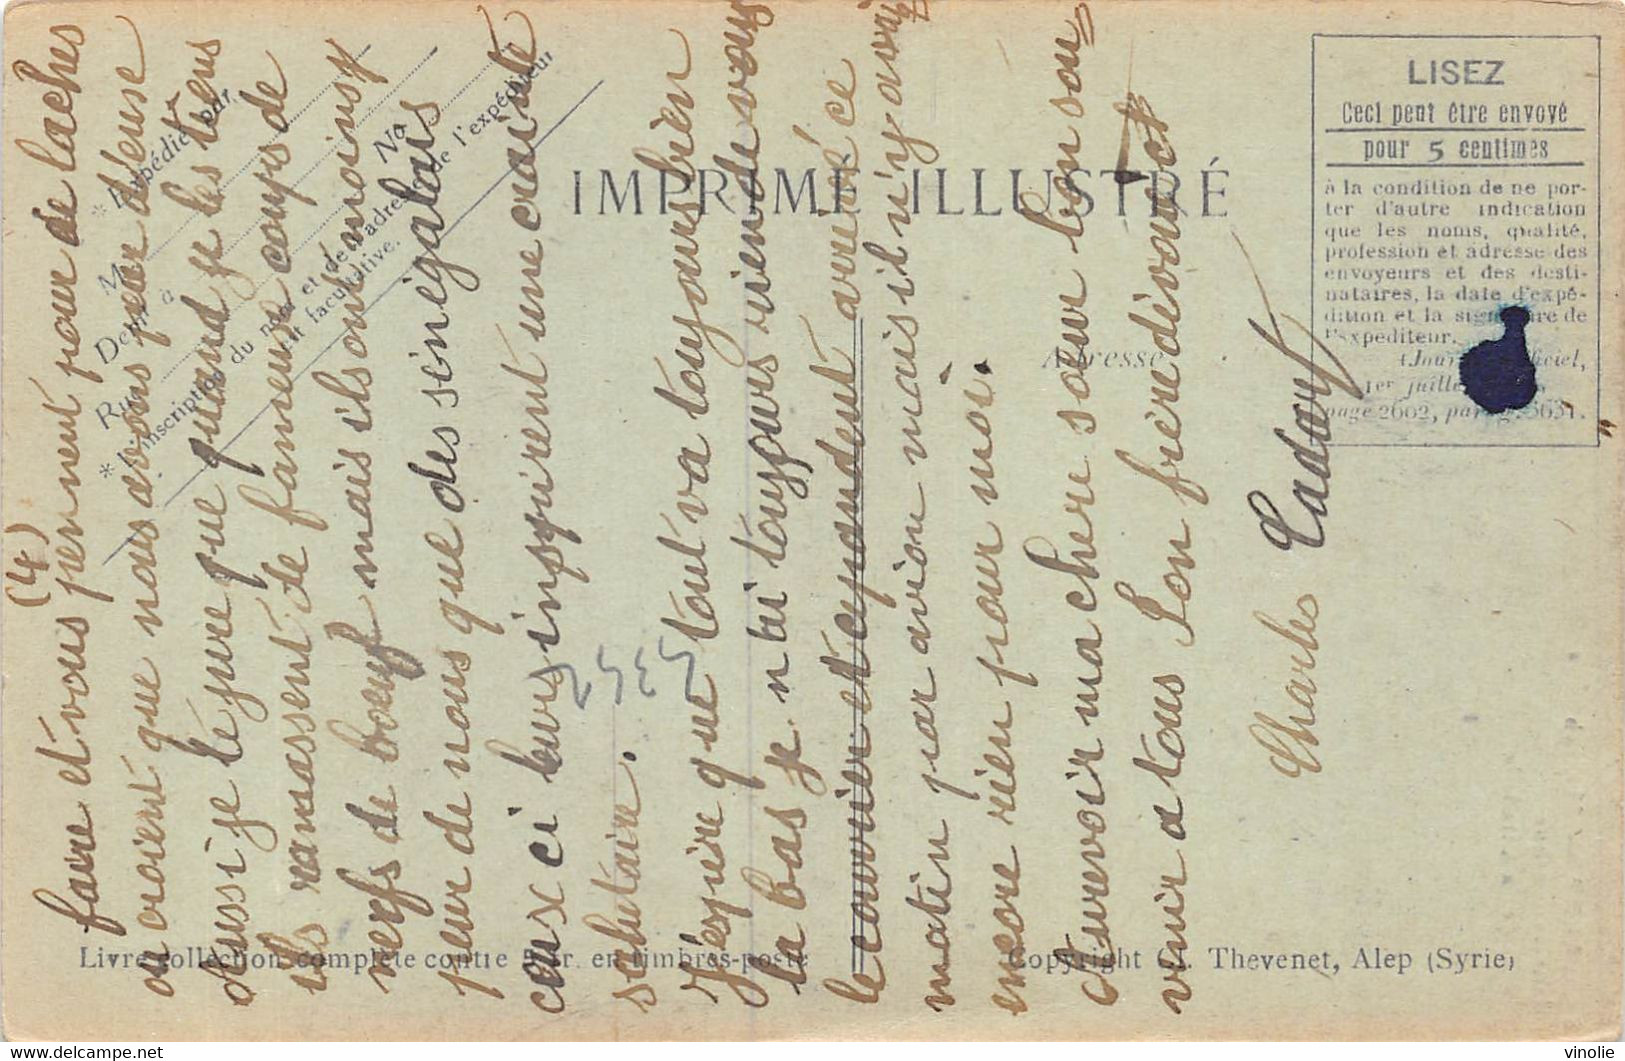 (4)
faire et vous prennent pour de laches
ou croient que nous avons peur d'euse
aussi je te jure que quand je les tiens
ils ramassent de fameux coups de
nerfs de boeuf mais ils ont moins
peur de nous que des sénégalais
car ceux ci leurs inspirent une crainte
salutaire.
J'espire que tout va toujours bien
la bas je n'ai toujours rien de vous
le courrier et cependant arrivé ce
matin par avion mais il n'y avait
encore rien pour moi.
Aurevoir ma chere soeur bon sou=
venir a tous Ton frère dévoué
Charles Cadart
IMPRIMÉ ILLUSTRÉ
Adresse
LISEZ
Ceci peut être envoyé
pour 5 centimes
à la condition de ne por-
ter d'autre indication
que les noms, qualité,
profession et adresse des
envoyeurs et des desti-
nataires, la date d'expé-
dition et la signature de
l'expéditeur.
(Journal Officiel,
1er juillet
page 2602, parag. 3651.
* Expédié par
M
Dem à
Rue No
* L'inscription du nom et de l'adresse de l'expéditeur
est facultative.
Livre collection complète contre en timbres-poste
Copyright Cl. Thevenet, Alep (Syrie)
vinolie